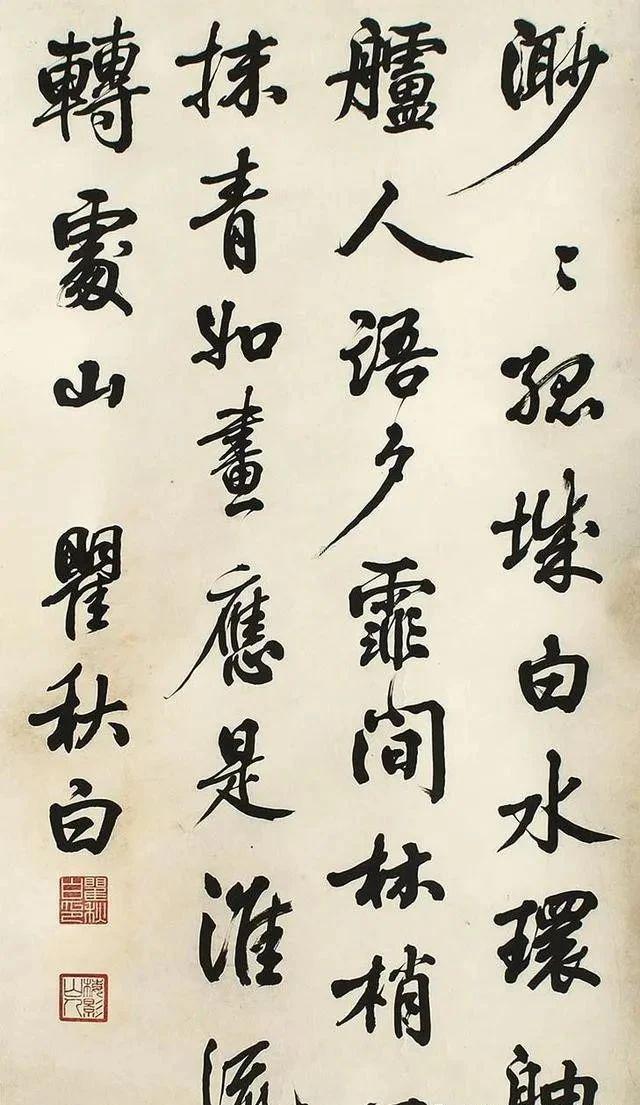 渺〻孤城白水環舳
艫人語夕霏間林梢
抹青如畫應是淮流
轉處山 瞿秋白
瞿秋白印